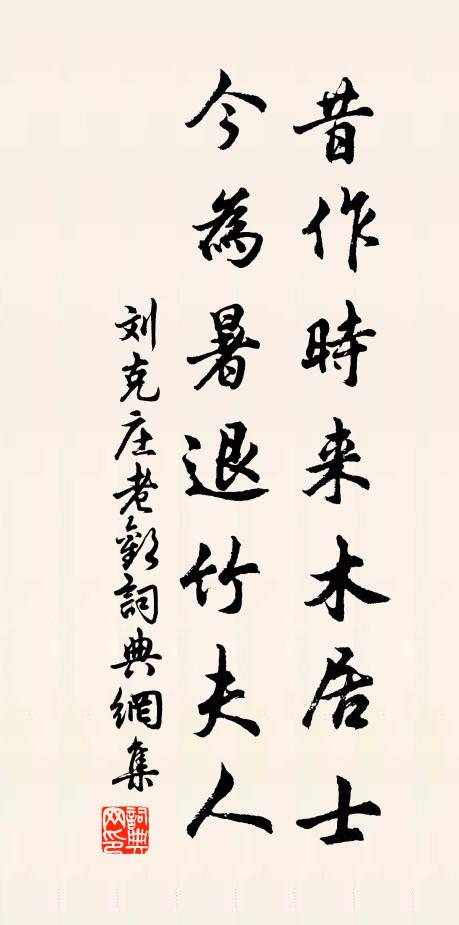 昔作時来木居士
今為暑退竹夫人
刘克庄老歎詞典網集
詞典網印